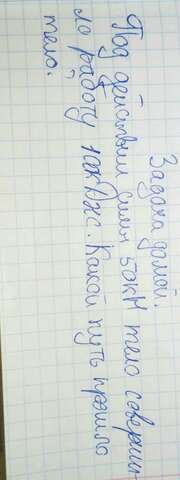 Задача домой.
Под действием силы 50кН тело соверши-
ло работу 10кДж. Какой путь прошло
тело.